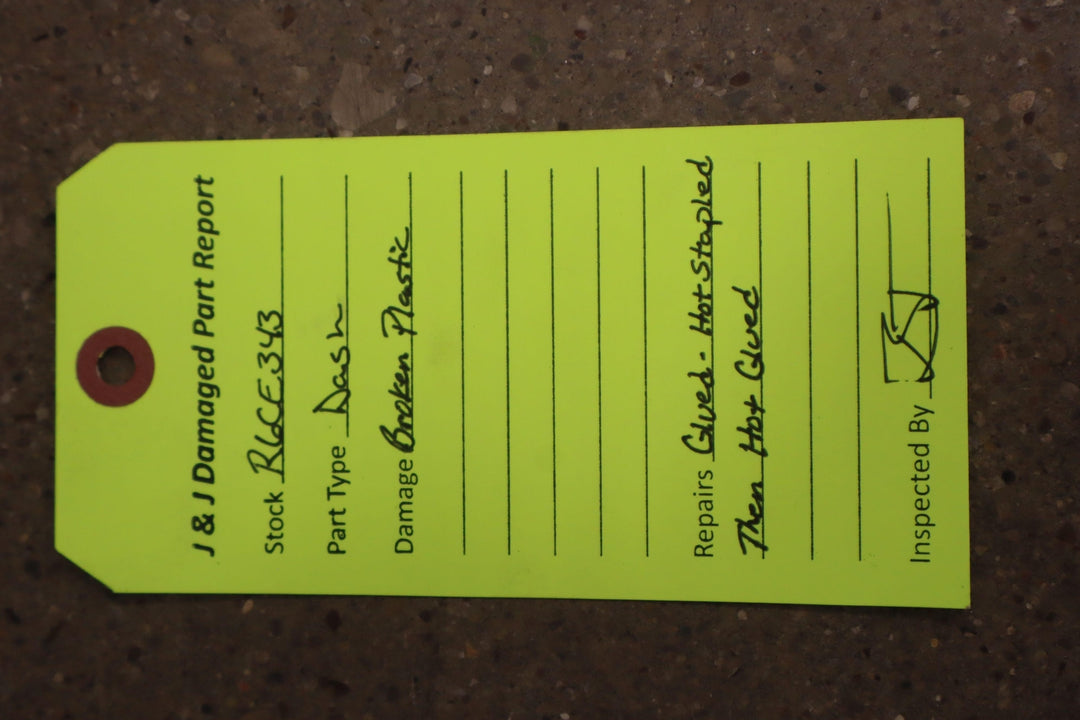 J & J Damaged Part Report
Stock R6CE343
Part Type Dash
Damage Broken Plastic
Repairs Glued - Hot Stapled
Then Hot Glued
Inspected By